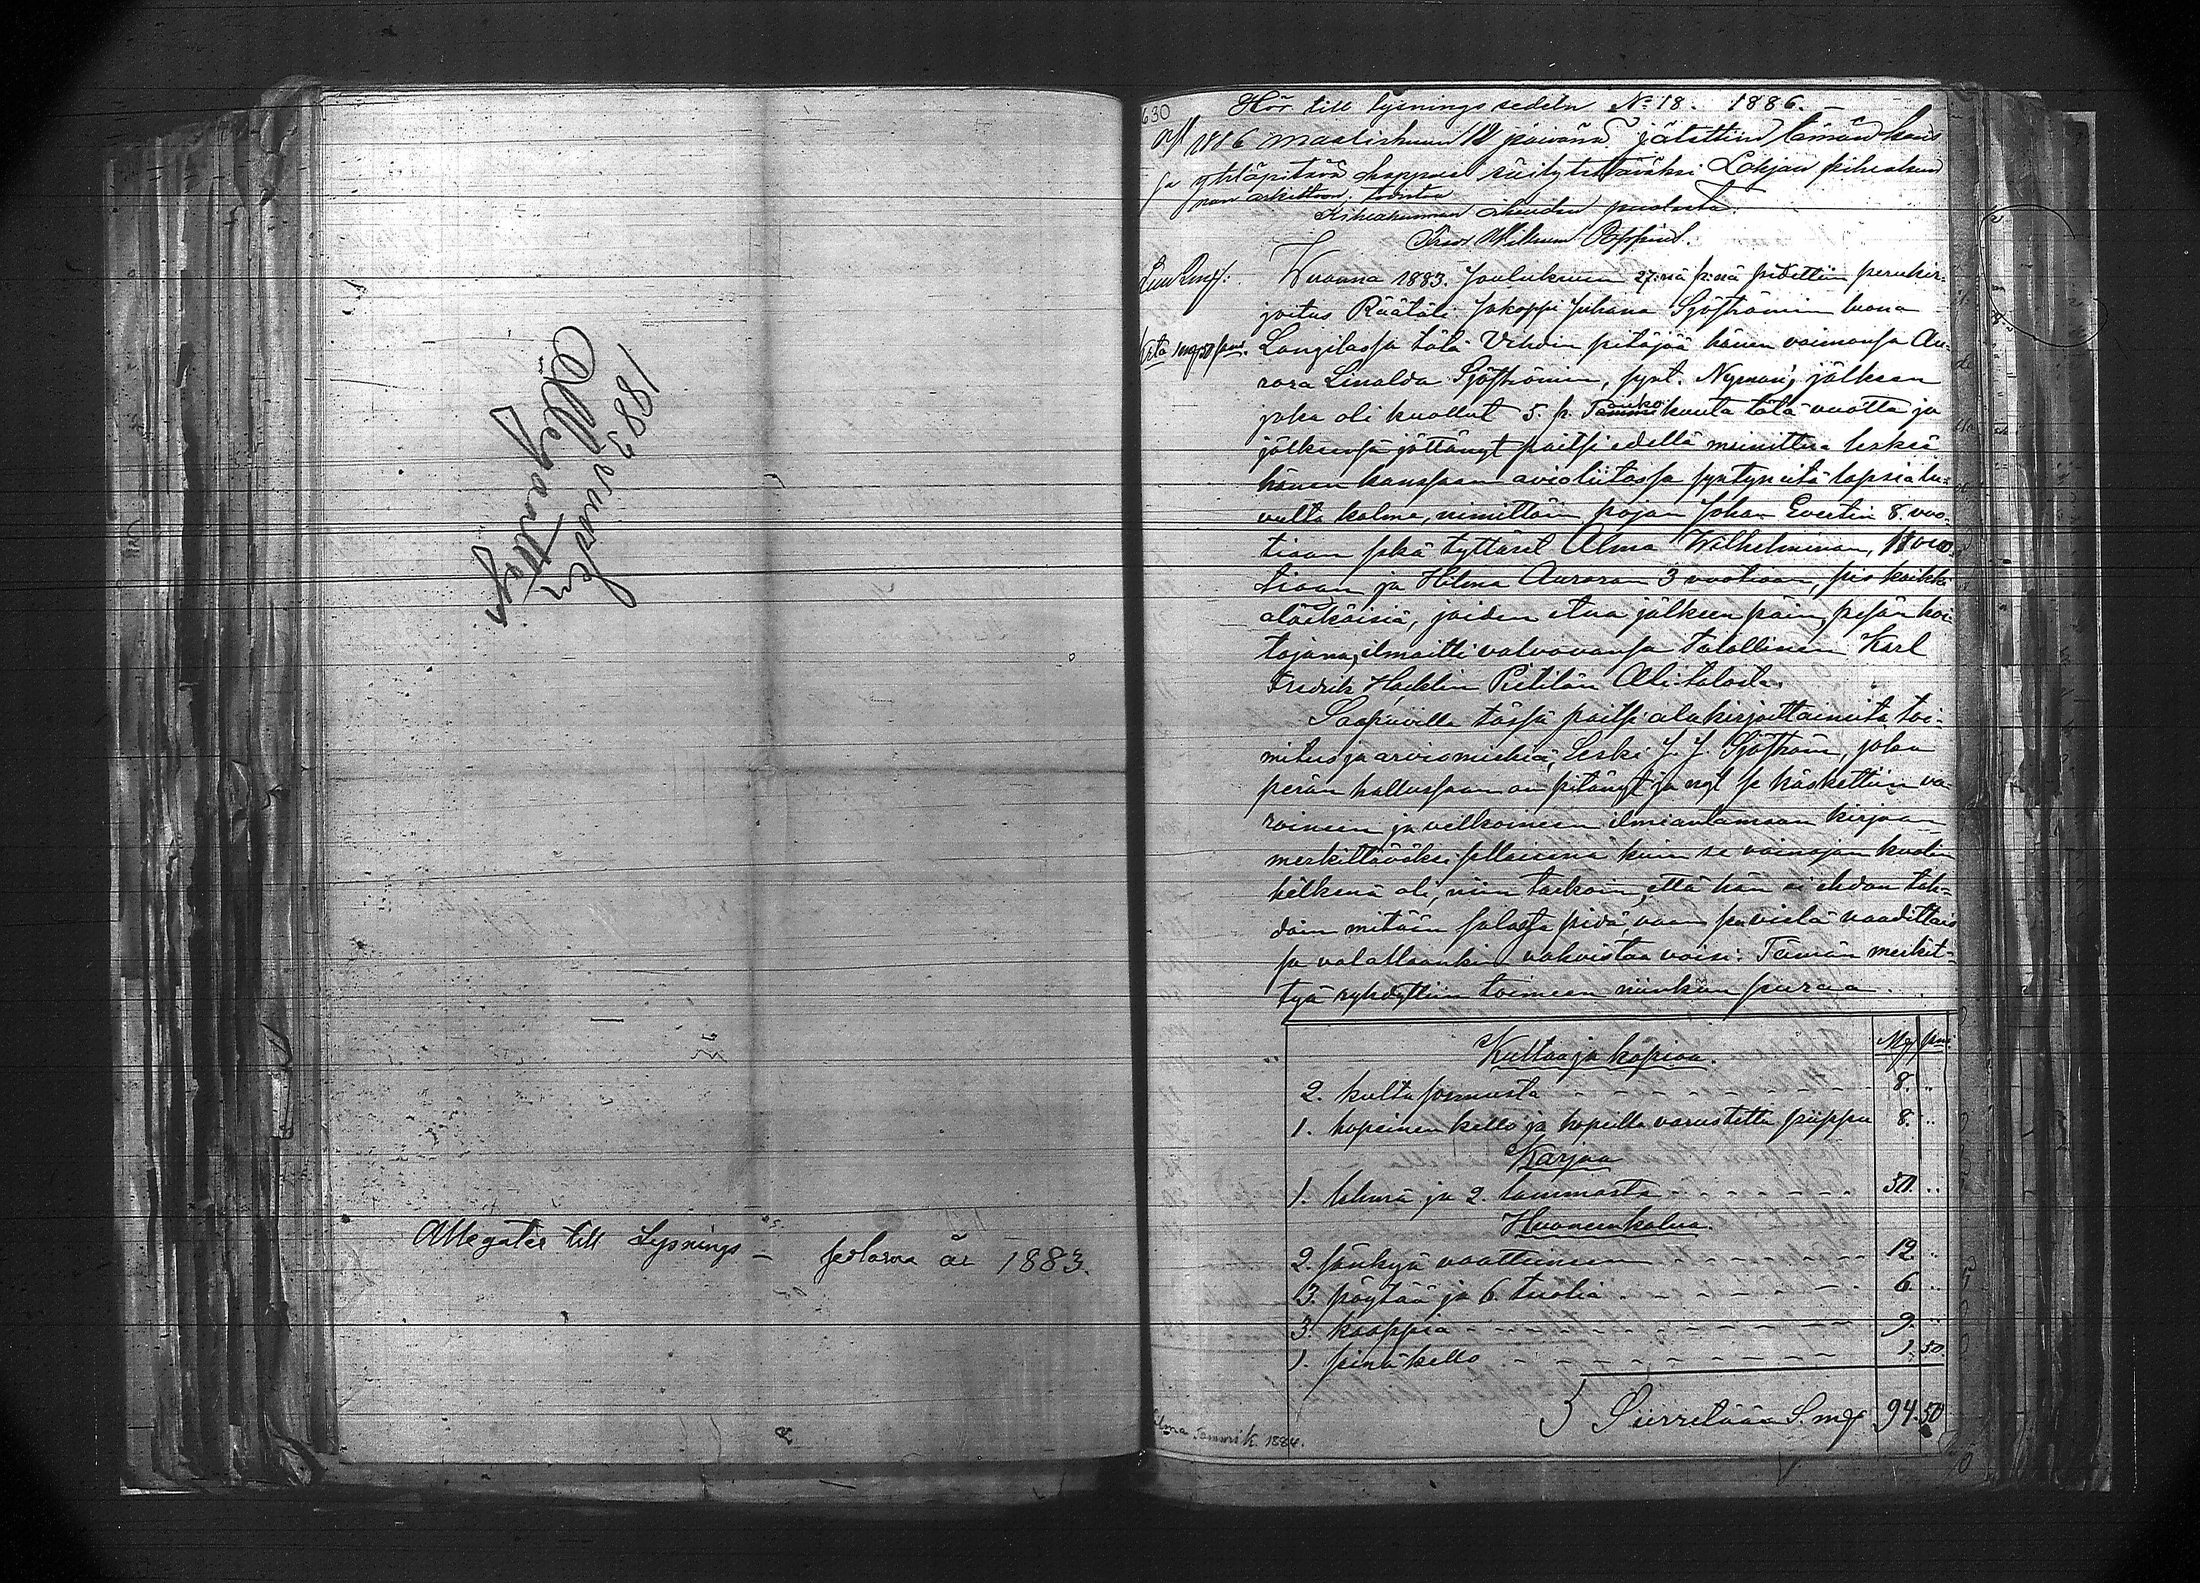 1883 vuoden
Allegaatteja
Allegater till Lysnings-
sedlarna år 1883.
630
Hör till lysnings sedeln No 18. 1886.
1886 maaliskuun 18 päivänä jätettiin tämän kans
sa yhtäpitävä kappale säilytettäväksi Lohjan kihlakun
nan arkistoon; todistaa
Kihlakunnan oikeuden puolesta:
Frans Wilhelm
Wuonna 1883 Joulukuun 27:nä p:nä pidettiin perukir-
joitus Räätäli Jakoppi Juhana Sjöströmin luona
1 mg 50 pns. Langilassa tätä Vihdin pitäjää hänen vaimonsa Au-
rora Linalda Sjöströmin, synt. Nyman, jälkeen
joka oli kuollut 5. p. Touko kuuta tätä vuotta ja
jälkeensä jättänyt paitsi edellä mainittua leskeä
hänen kanssaan avioliitossa syntyneitä lapsia lu-
vulta kolme, nimittäin pojan Johan Evertin 8. vuo-
tiaan sekä tyttäret Alma Wilhelminan, 11 vuo-
tiaan ja Hilma Auroran 3 vuotiaan, siis kaikki
aläikäisiä, joiden etua jälkeen päin, pesän hoi-
tajana, ilmoitti valvovansa Talollinen Karl
Fredrik Hacklin Pietilän Ali-talosta.
Saapuvilla tässä paitsi alakirjoittaineita toi-
mitus ja arviomiehiä, Leski J. J. Sjöström, joka
pesän hallussaan on pitänyt ja nyt se käskettiin va-
roineen ja velkoineen ilmiantamaan kirjaan
merkittäväksi sellaisena kuin se vainajan kuolin
hetkenä oli, niin tarkoin, että hän ei ehdon tah-
doin mitään salassa pidä, vaan sen vielä vaadittais
sa valallaankin vahvistaa voisi. Tämän merkit-
tyä ryhdyttiin toimeen niinkuin seuraa
Smg pns.
Kultaa ja hopiaa.
2. kulta sormusta 8. "
1. hopeinen kello ja hopeilla varustettu piippu 8. "
Karjaa
1. lehmä ja 2. lammasta 50. "
Huoneenkalua.
2. sänkyä vaatteineen 12. "
3. pöytää ja 6. tuolia 6. "
3. kaappia 9. "
1. seinäkello 1. 50.
Siirretään S.mg 94. 50
Tammik. 1884.